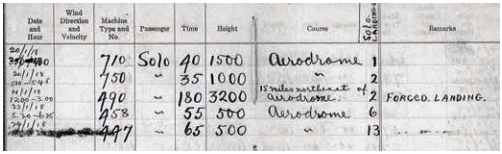 Date and Hour Wind Direction and Velocity Machine Type and No. Passenger Time Height Course SOLO. LANDINGS Remarks
20/1/18
710 Solo 40 1500 Aerodrome 1
20/1/18
750 " 35 1000 " 2
15 miles northeast of
12.00-3.00 490 " 180 3200 Aerodrome. 2 FORCED. LANDING.
22/1/18
458 " 55 500 Aerodrome 6
24/1/18
447 " 65 500 " 13